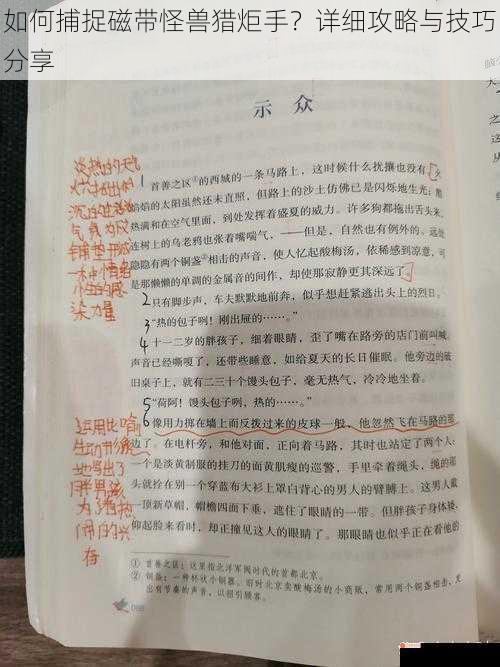 如何捕捉磁带怪兽猎炬手？详细攻略与技巧
分享
示 众
1 首善之区①的西城的一条马路上，这时候什么扰攘也没有。火
焰焰的太阳虽然还未直照，但路上的沙土仿佛已是闪烁地生光；酷
热满和在空气里面，到处发挥着盛夏的威力。许多狗都拖出舌头来，
连树上的乌老鸦也张着嘴喘气，——但是，自然也有例外的。远处
隐隐有两个铜盏②相击的声音，使人忆起酸梅汤，依稀感到凉意，可
是那懒懒的单调的金属音的间作，却使那寂静更其深远了。
2 只有脚步声，车夫默默地前奔，似乎想赶紧逃出头上的烈日。
3 “热的包子咧！刚出屉的……。”
4 十一二岁的胖孩子，细着眼睛，歪了嘴在路旁的店门前叫喊。
声音已经嘶嗄了，还带些睡意，如给夏天的长日催眠。他旁边的破
旧桌子上，就有二三十个馒头包子，毫无热气，冷冷地坐着。
5 “荷阿！馒头包子咧，热的……。”
6 像用力掷在墙上而反拨过来的皮球一般，他忽然飞在马路的那
边了。在电杆旁，和他对面，正向着马路，其时也站定了两个人：
一个是淡黄制服的挂刀的面黄肌瘦的巡警，手里牵着绳头，绳的那
头就拴在别一个穿蓝布大衫上罩白背心的男人的臂膊上。这男人戴
一顶新草帽，帽檐四面下垂，遮住了眼睛的一带。但胖孩子身体矮，
仰起脸来看时，却正撞见这人的眼睛了。那眼睛也似乎正在看他的
① 首善之区：这里指北洋军阀时代的首都北京。
② 铜盏：一种杯状小铜器。旧时北京卖酸梅汤的小商贩，常用两个铜盏相击，发
出有节奏的声音，以招引顾客。
炎热的天气
沉闷的生活
气氛为下文
铺垫形成
染力量
运用比喻
生动形象
地写出了
胖男孩
为了看热
闹的兴